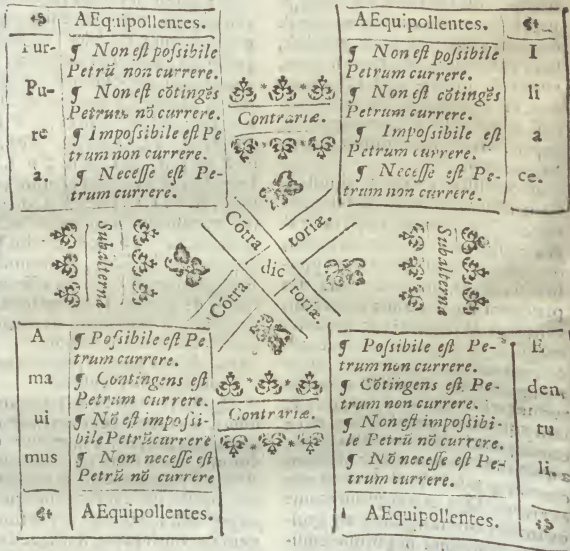 AEquipollentes.
Pur-
¶ Non est possibile
Petrū non currere.
Pu-
¶ Non est cōtingēs
Petrum nō currere.
re
¶ Impossibile est Pe
trum non currere.
a.
¶ Necesse est Pe-
trum currere.
Contrariæ.
AEquipollentes.
¶ Non est possibile
Petrum currere.
I
¶ Non est cōtingēs
Petrum currere.
li
¶ Impossibile est
Petrum currere.
a
¶ Necesse est Pe-
trum non currere.
ce.
Subalternæ
Cōtra
dic
toriæ.
Cōtra
toriæ.
Subalternæ
A
¶ Possibile est Pe
trum currere.
ma
¶ Contingens est
Petrum currere.
ui
¶ Nō est impossi-
bile Petrū currere
mus
¶ Non necesse est
Petrū nō currere
AEquipollentes.
Contrariæ.
¶ Possibile est Pe-
trum non currere.
E
¶ Cōtingens est Pe-
trum non currere.
den,
¶ Non est impossibi-
le Petrū nō currere.
tu
¶ Nō necesse est Pe-
trum currere.
li.
AEquipollentes.